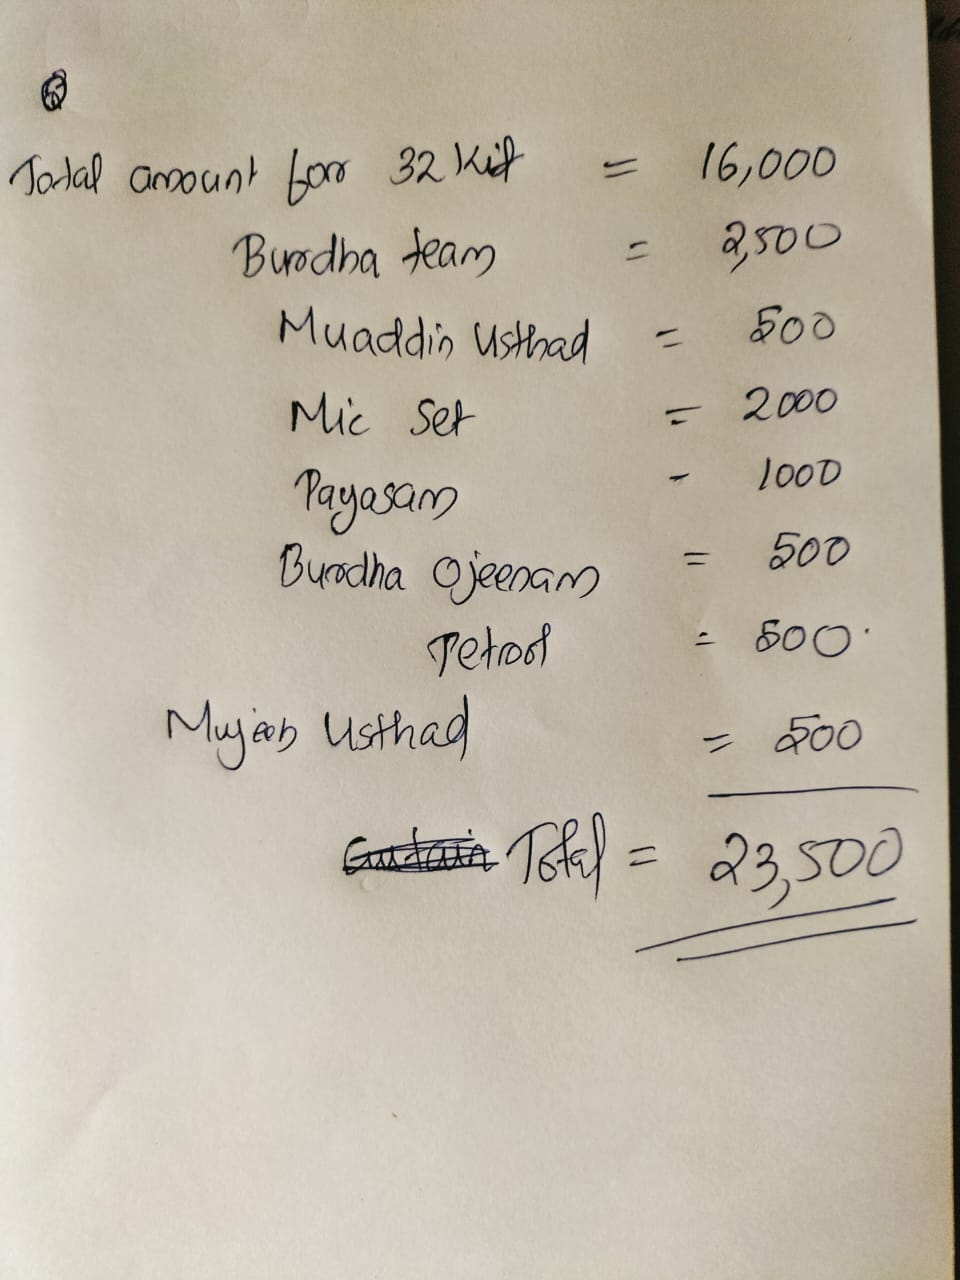 Total amount for 32 Kit = 16,000
Burdha team = 2,500
Muaddin Usthad = 500
Mic Set = 2000
Payasam - 1000
Burdha Ojeenam = 500
Petrol = 500
Mujeeb Usthad = 500
Total = 23,500